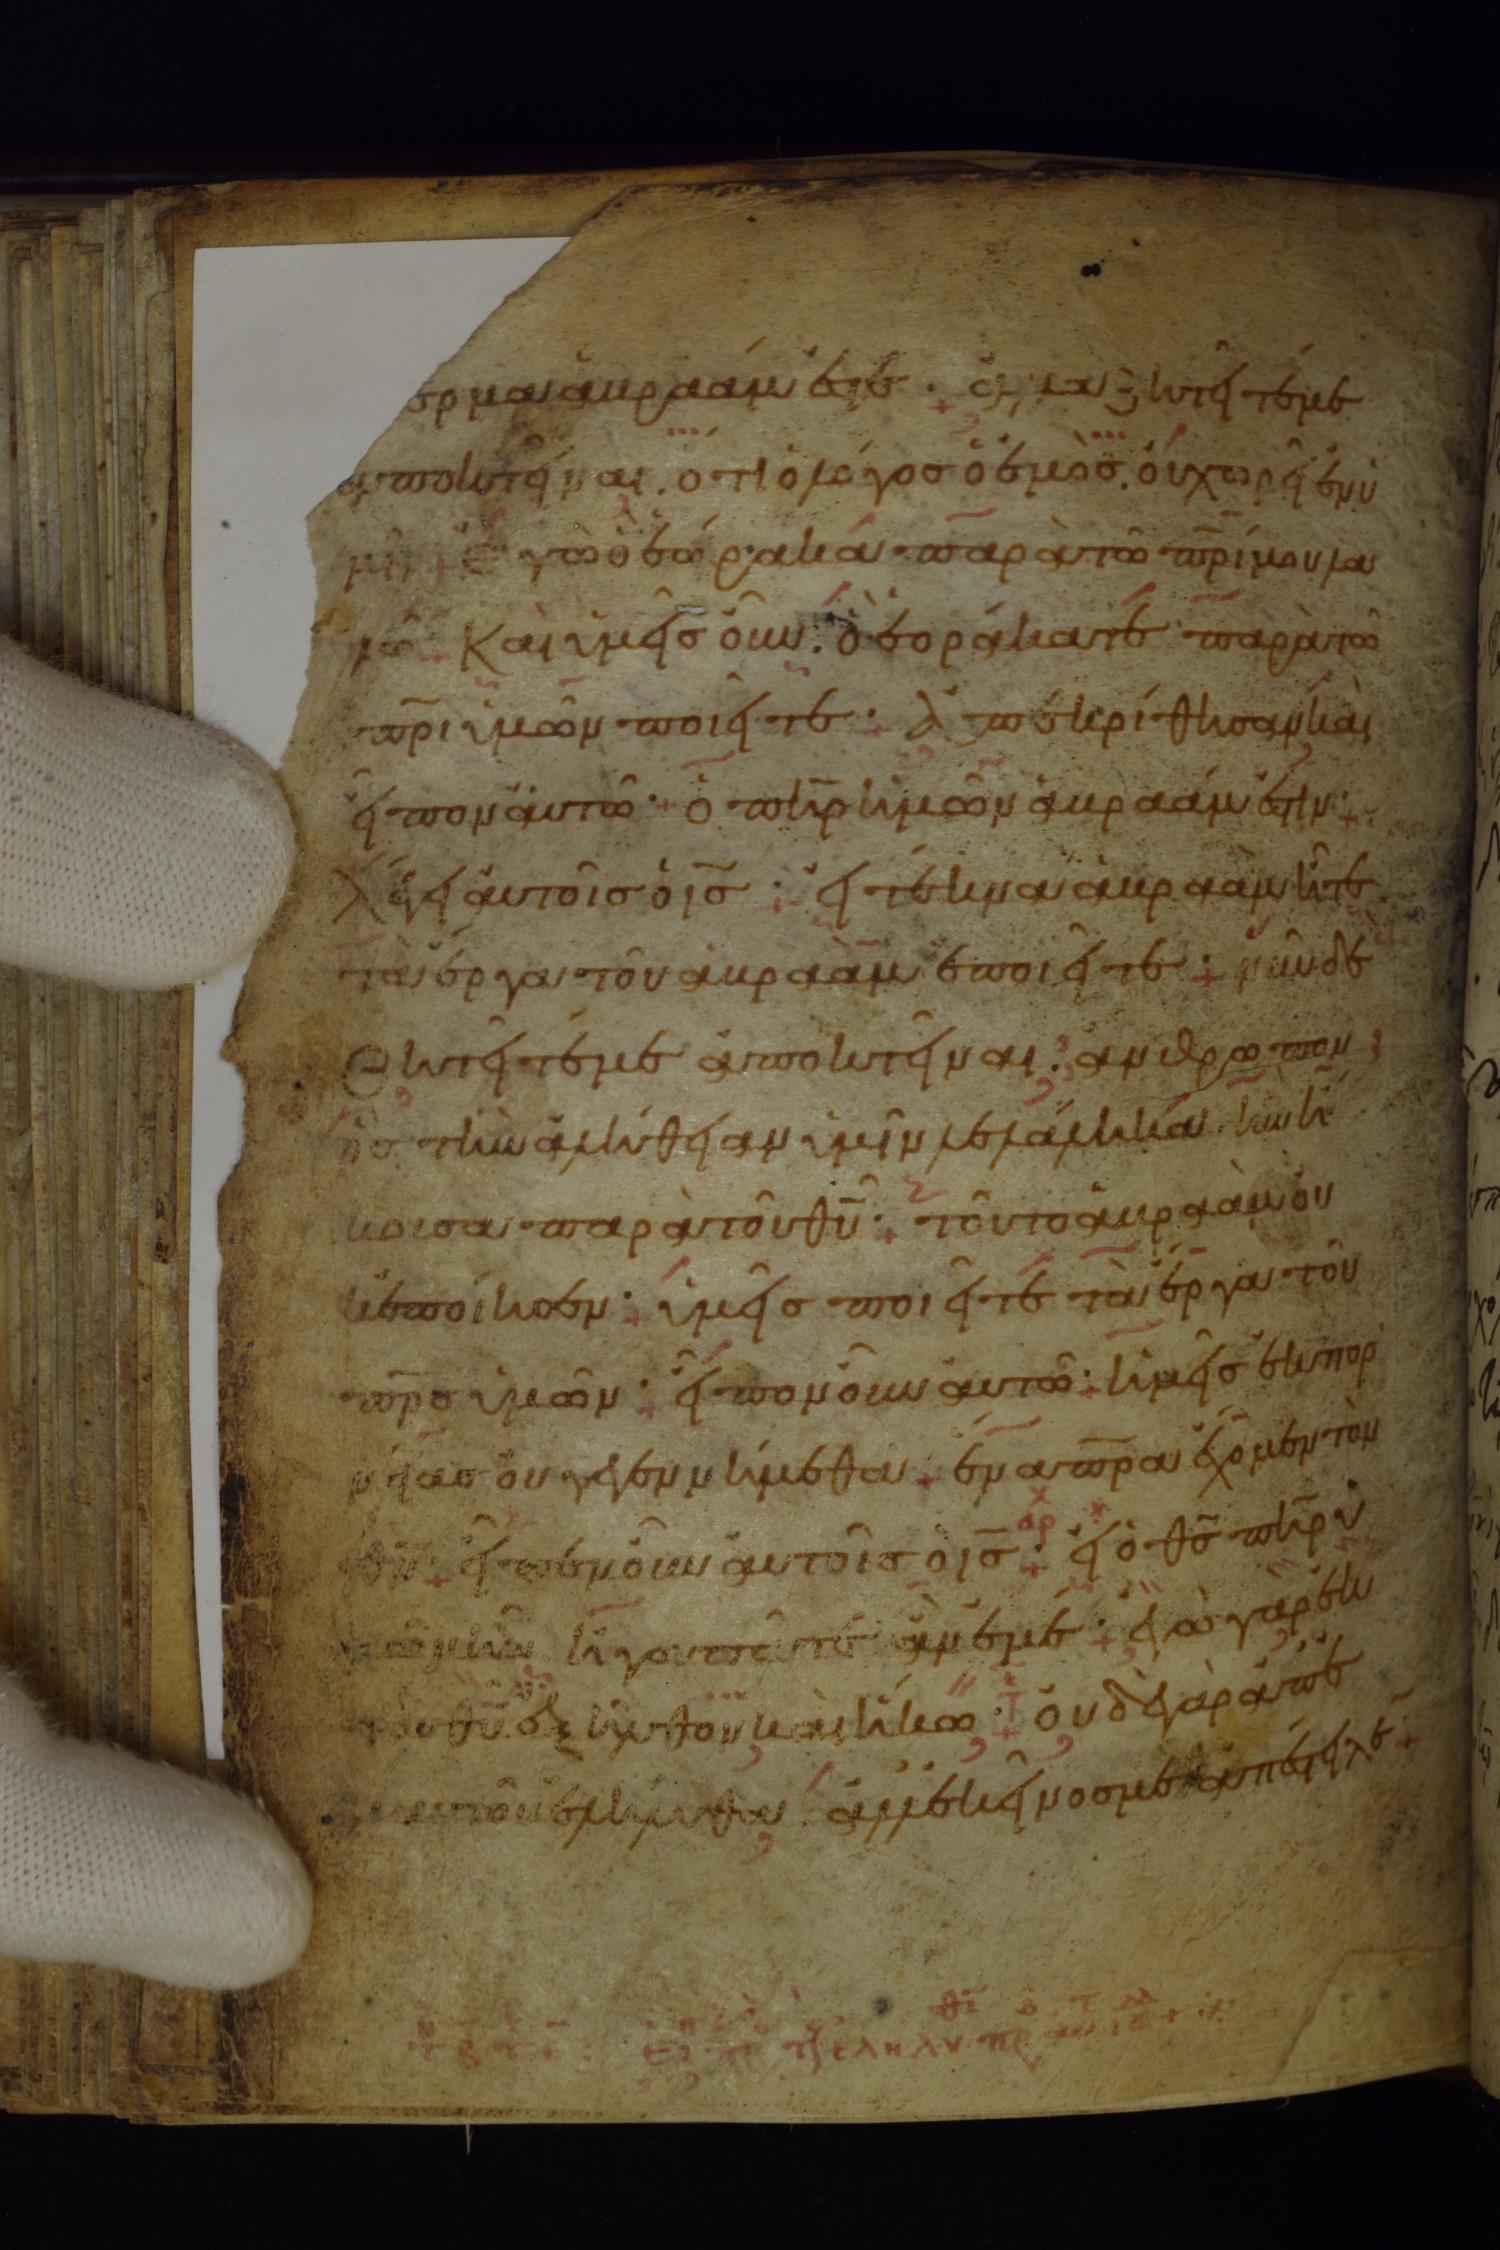 σπέρμα ἀβραάμ ἐστε· ἀλλὰ ζητεῖτέ με
ἀποκτεῖναι. ὅτι ὁ λόγος ὁ ἐμὸς. οὐ χωρεῖ ἐν ὑ
μῖν + Ἐγὼ ὃ ἑώρακα παρὰ τῶ πρι μου λα
λῶ + Καὶ ὑμεῖς οὖν. ὃ ἑοράκατε παρὰ τῶ
πρι ὑμῶν ποιεῖτε· + ἀπεκρίθησαν καὶ
εἶπον αὐτῶ· + ὁ πηρ ἡμῶν ἀβραάμ ἐστιν· +
λέγει αὐτοῖς ὁ ις· + εἰ τέκνα ἀβραὰμ ἦτε
τὰ ἔργα τοῦ ἀβραὰμ ἐποιεῖτε· + νῦν δὲ
ζητεῖτέ με ἀποκτεῖναι. ἄνθρωπον
ὃς τὴν ἀλήθειαν ὑμῖν λελάληκα ἣν ἤ
κουσα παρὰ τοῦ θυ· + τοῦτο ἀβραὰμ οὐ
κ ἐποίησεν· + ὑμεῖς ποιεῖτε τὰ ἔργα τοῦ
πρς ὑμῶν· + εἶπον οὖν αὐτῶ· + ἡμεῖς ἐκ πορ
νείας οὐ γεγεννήμεθα + ἕνα πρα ἔχομεν τὸν
θν· + εἶπεν οὖν αὐτοῖς ὁ ις· + εἰ ὁ θς πηρ ὑ
μῶν ἦν ἠγαπᾶτε ἂν ἐμέ· + ἐγὼ γὰρ ἐκ
τοῦ θυ ἐξῆλθον καὶ ἥκω· + οὐδὲ γὰρ ἀπ' ἐ
μαυτοῦ ἐλήλυθα. ἀλλ' ἐκεῖνός με ἀπέστειλε +